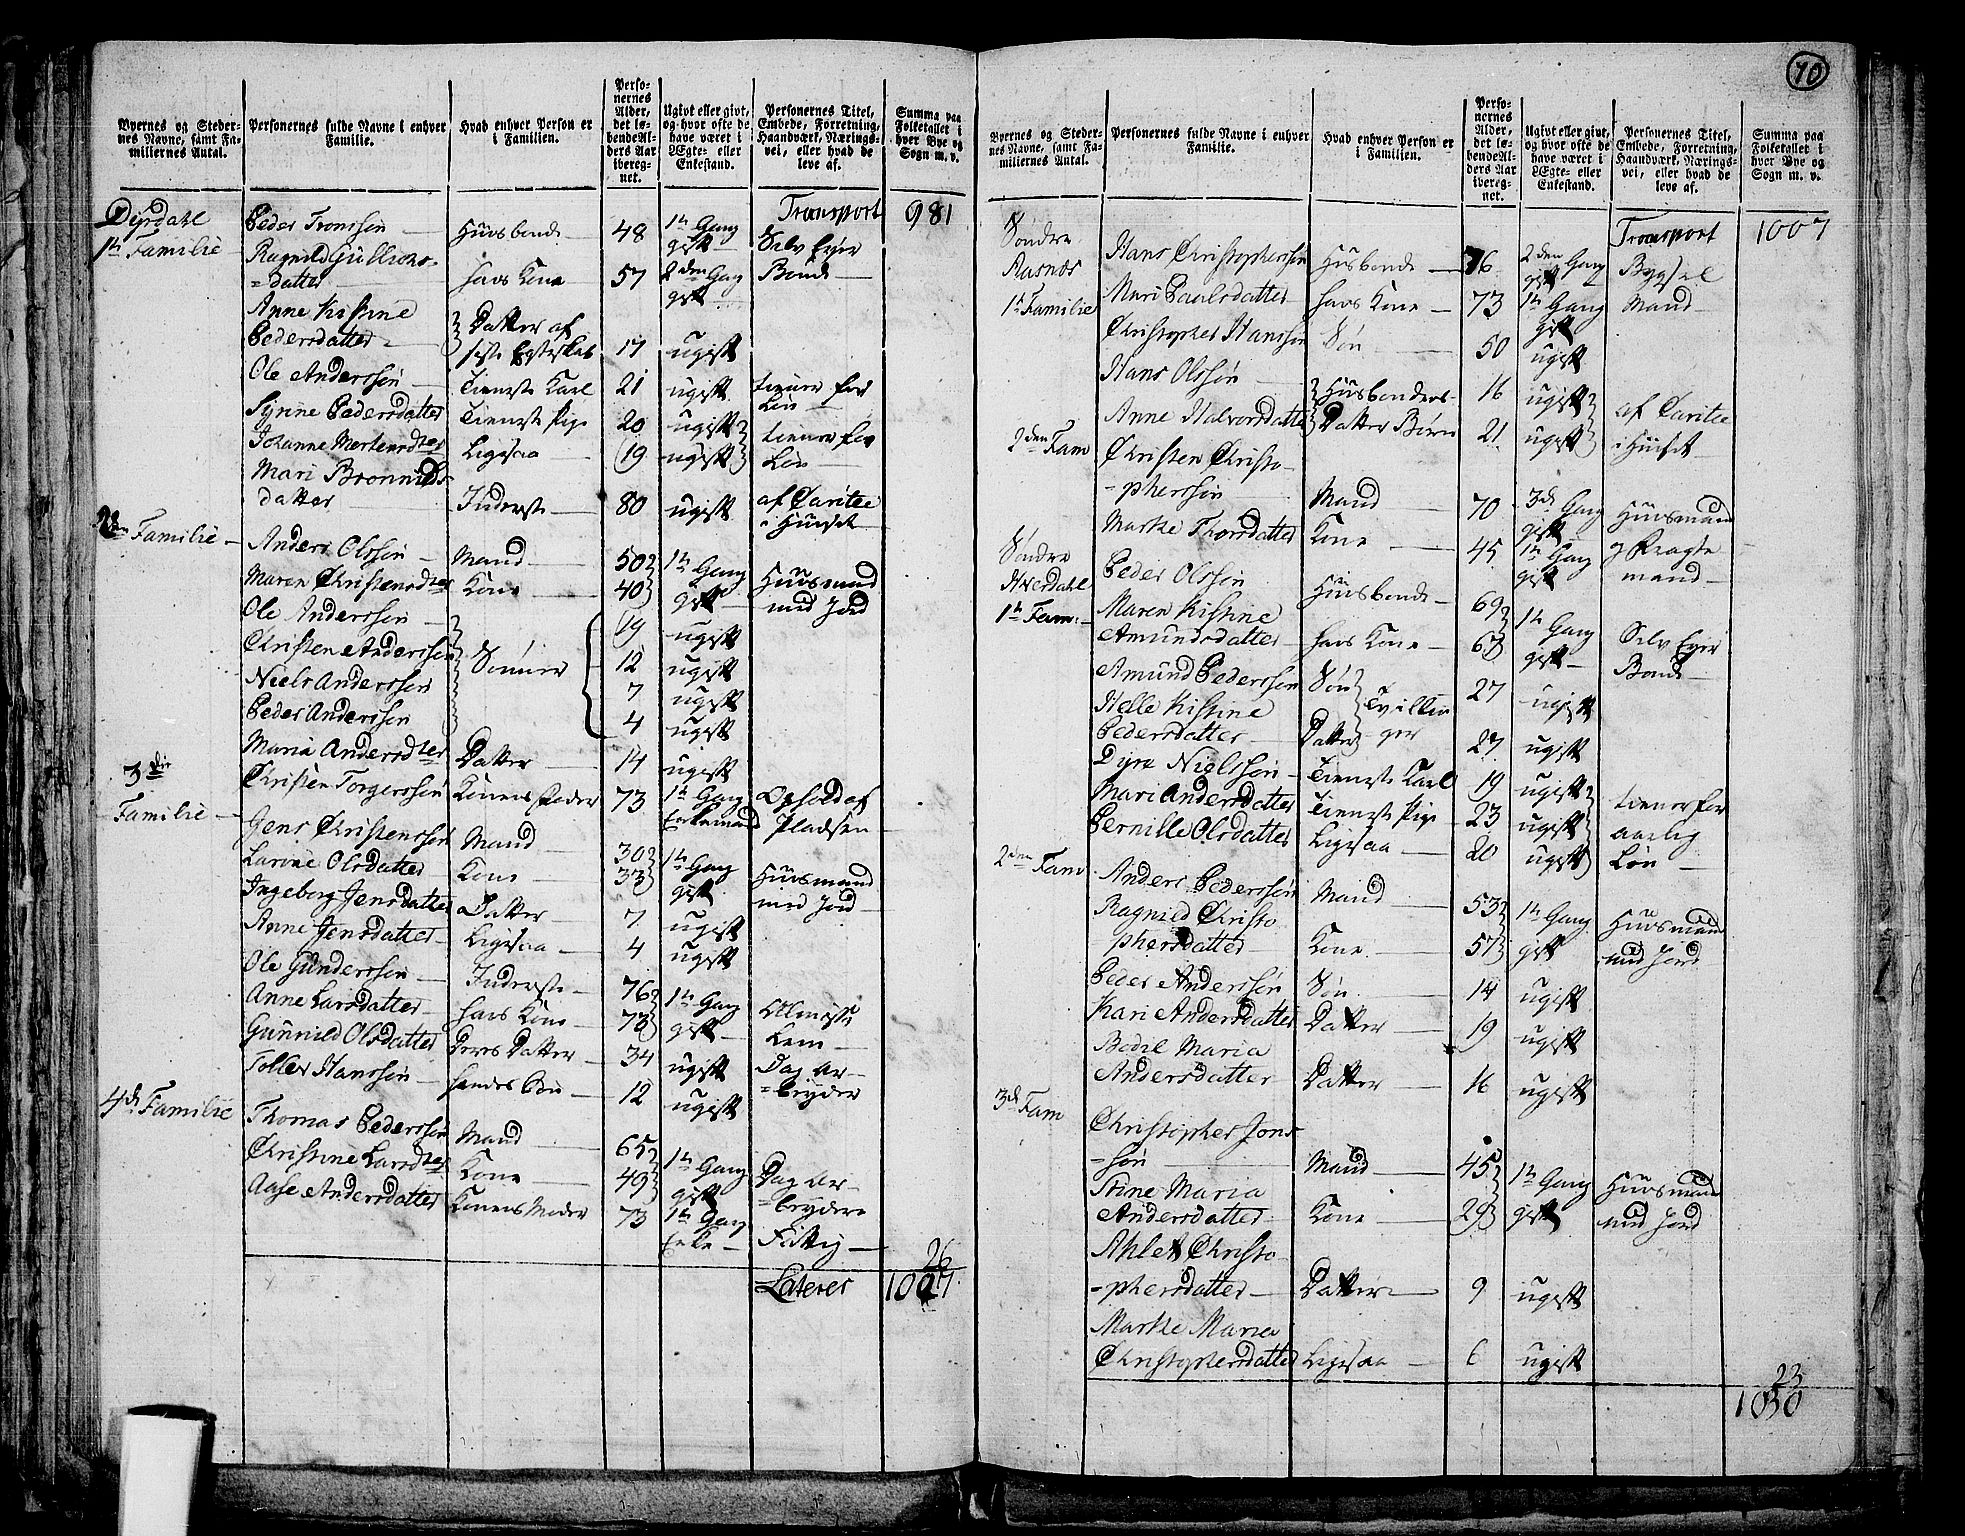 10
Byernes og Steder-
nes Navne, samt Fa-
miliernes Antal.
Personernes fulde Navne i enhver
Familie.
Hvad enhver Person er
i Familien.
Perso-
nernes
Alder,
det lø-
bende Al-
ders Aar
iberegn-
net.
Ugivt eller givt,
og hvor ofte de
have været i
Ægte- eller
Enkestand.
Personernes Titel,
Embede, Forretning,
Haandværk, Nærings-
vei, eller hvad de
leve af.
Summa paa
Folketallet i
hver Bye og
Sogn m. v.
Transport 981
Dyrdahl
1te Familie
Peder Tronssøn Huusbonde 48 1te Gang gift Selv Eyer
Ragnild Gullichs-
=datter hans Kone 57 2den Gang gift Bonde
Anne Kistine
Pedersdatter Datter af siste Egteskab 17 ugift
Ole Anderssøn Tieneste Karl 21 ugift tiener for Løn
Synne Pedersdatter Tieneste Pige 20 ugift tiener for
Johanne Mortensdter Ligesaa 19 ugift Løn
Mari Bronnilds
datter Inderste 80 ugift af Caritee i Huuset
2den Familie
Anders Olssøn Mand 50 1te Gang Huusmand
Maren Christensdter Kone 40 gift med Jord
Ole Anderssøn 19 ugift
Christen Anderssøn Sønner 12 ugift
Niels Anderssøn 7 ugift
Peder Anderssøn 4 ugift
Maria Andersdter Datter 14 ugift
3die
Familie
Christen Torgerssøn Konens Fader 73 1te Gang Enkemand Ophold af Pladsen
Jens Christenssøn Mand 30 1te Gang Huusmand
Larine Olsdatter Kone 33 gift med Jord
Ingeborg Jensdatter Datter 7 ugift
Anne Jensdatter Ligesaa 4 ugift
Ole Gunderssøn Inderste 76 1te Gang Almisse
Anne Larsdatter hans Kone 73 gift Lem
Gunnild Olsdatter Deres Datter 34 ugift Dag Ar-
Toller Hanssøn hendes Søn 12 ugift =beyder
4de Familie
Thomas Pederssøn Mand 65 1te Gang Dag Ar-
Christine Larsdter Kone 49 gift =beydere
Aase Andersdatter Konens Moder 73 1te Gang Enke Fattig
26
Lateres 1007
Byernes og Steder-
nes Navne, samt Fa-
miliernes Antal.
Personernes fulde Navne i enhver
Familie.
Hvad enhver Person er
i Familien.
Perso-
nernes
Alder,
det lø-
bende Al-
ders Aar
iberegn-
net.
Ugivt eller givt,
og hvor ofte de
have været i
Ægte- eller
Enkestand.
Personernes Titel,
Embede, Forretning,
Haandværk, Nærings-
vei, eller hvad de
leve af.
Summa paa
Folketallet i
hver Bye og
Sogn m. v.
Transport 1007
Søndre
Aasnæs
1te Familie
Hans Christopherssøn Husbonde 76 2den Gang gift Bygsel
Mari Paulsdatter hans Kone 73 1te Gang gift Mand
Christopher Hanssøn Søn 50 ugift
Hans Olssøn Huusbondens 16 ugift af Caritee
Anne Halvorsdatter Datter Børn 21 ugift i Huset
2den Fam
Christen Christo-
=pherssøn Mand 70 3de Gang gift Huusmand
Marthe Thorsdatter Kone 45 1te Gang gift og Bragte mand
Søndre
Hverdahl
1te Fam:
Peder Olssøn Huusbonde 69 1te Gang
Maren Kistine
Amundsdatter hans Kone 67 gift Selv Eyer Bonde
Amund Pederssøn Søn 27 ugift
Helle Kistine Tvillin
Pedersdatter Datter ger 27 ugift
Dyre Nielssøn Tieneste Karl 19 ugift tiener for
Mari Andersdatter Tieneste Pige 23 ugift aarlig
Pernille Olsdatter Ligesaa 20 ugift Løn
2den Fam
Anders Pederssøn Mand 53 1te Gang Huusmand
Ragnild Christo
=phersdatter Kone 57 gift med Jord
Peder Anderssøn Søn 14 ugift
Kari Andersdatter Datter 19 ugift
Bodil Maria
Andersdatter Datter 16 ugift
3de Fam
Christopher Jons
=søn Mand 45 1te Gang Huusmand
Stine Maria
Andersdatter Kone 29 gift med Jord
Ahlet Christo
=phersdatter Datter 9 ugift
Marthe Maria
Christophersdatter Ligesaa 6 ugift
23
1030